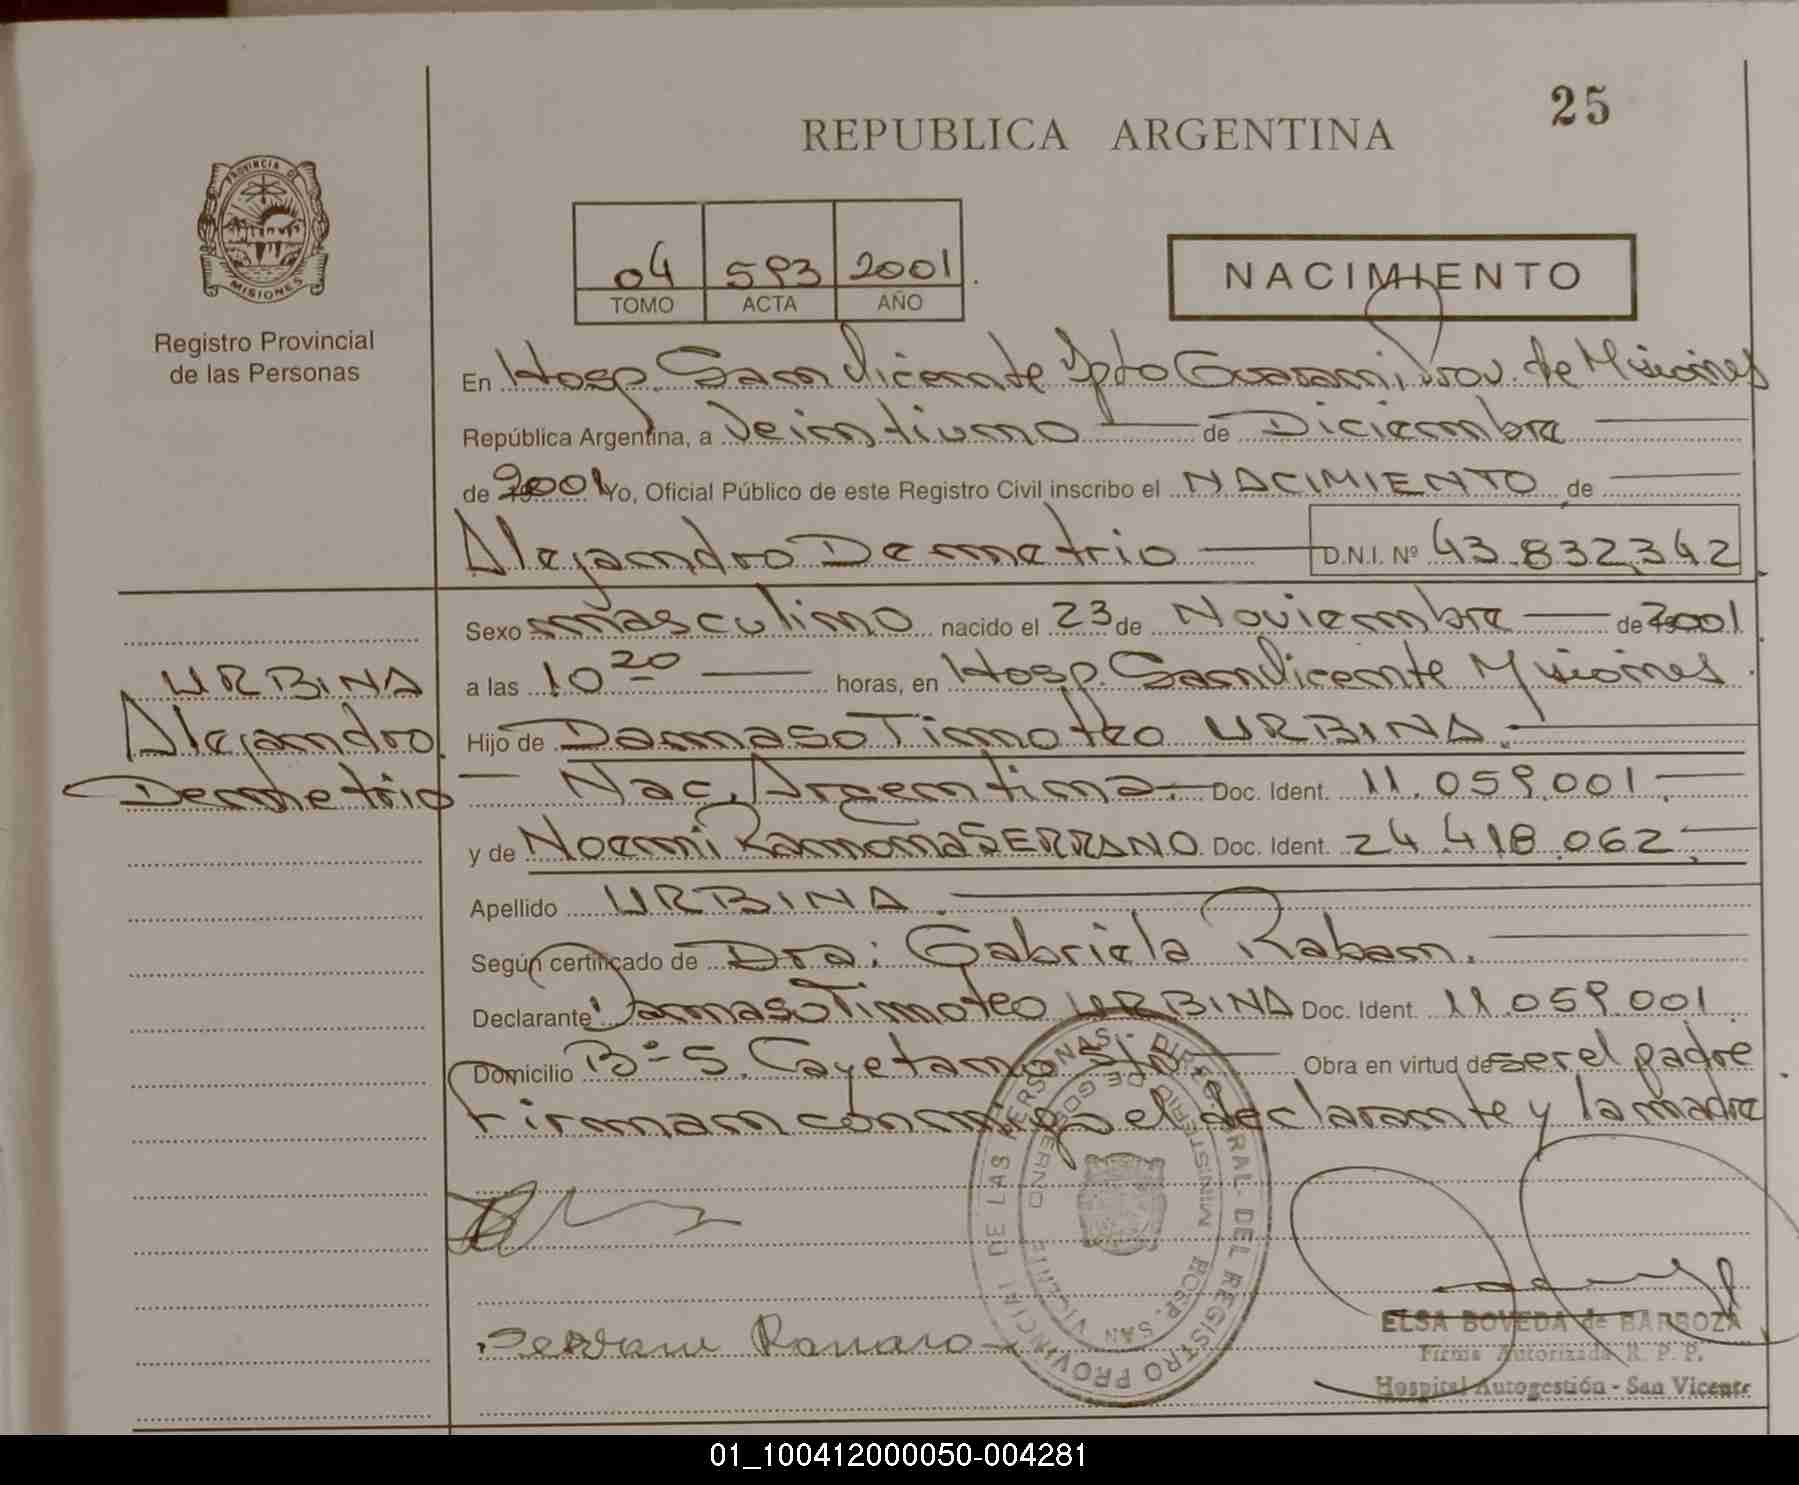 25
REPUBLICA ARGENTINA
PROVINCIA DE
MISIONES
Registro Provincial
de las Personas
04 593 2001
TOMO ACTA AÑO
NACIMIENTO
En Hosp. San Vicente Dpto Guarani, Prov. de Misiones
República Argentina, a Veintiuno de Diciembre
de 2001 Yo, Oficial Público de este Registro Civil inscribo el NACIMIENTO de
Alejandro Demetrio D.N.I. Nº 43.832.342
Sexo masculino nacido el 23 de Noviembre de 2001
a las 10 20 horas, en Hosp. San Vicente Misiones
Hijo de Damaso Timoteo URBINA.
Nac. Argentina. Doc. Ident. 11.059.001.
y de Noemi Ramona SERRANO Doc. Ident. 24.418.062.
Apellido URBINA.
Según certificado de Dra: Gabriela Raban.
Declarante Damaso Timoteo URBINA Doc. Ident. 11.059.001
Domicilio Bº S. Cayetano Obra en virtud de ser el padre
Firman conmigo el declarante y la madre
URBINA
Alejandro
Demetrio
DIRECCION GENERAL DEL REGISTRO PROVINCIAL DE LAS PERSONAS
MINISTERIO DE GOBIERNO
HOSP. SAN VICENTE
ELSA BOVEDA de BARBOZA
Firma Autorizada R. P. P.
Hospital Autogestión - San Vicente
01_100412000050-004281